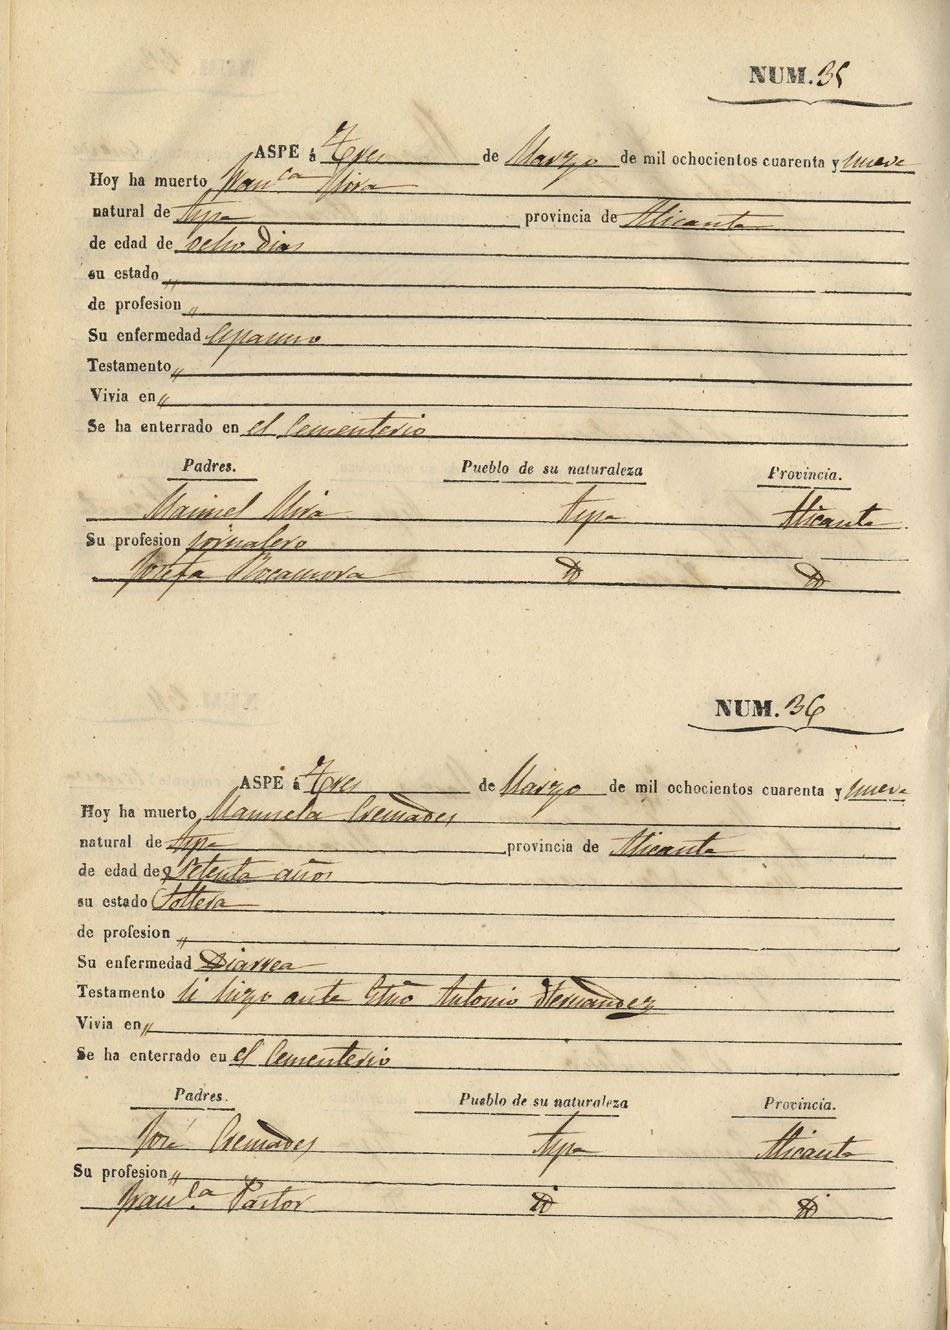 NUM. 35
ASPE á Tres de Marzo de mil ochocientos cuarenta y nueve
Hoy ha muerto Fran.ca Mira
natural de Aspe provincia de Alicante
de edad de ocho Dias
su estado "
de profesion "
Su enfermedad Espasmo
Testamento "
Vivia en "
Se ha enterrado en el Cementerio
Padres. Pueblo de su naturaleza Provincia.
Manuel Mira Aspe Alicante
Su profesion jornalero
Josefa Rocamora D D
NUM. 36
ASPE á Tres de Marzo de mil ochocientos cuarenta y nueve
Hoy ha muerto Manuela Cremades
natural de Aspe provincia de Alicante
de edad de Setenta años
su estado Soltera
de profesion "
Su enfermedad Diarrea
Testamento Si hizo ante Antonio Fernandez
Vivia en "
Se ha enterrado en el Cementerio
Padres. Pueblo de su naturaleza Provincia.
José Cremades Aspe Alicante
Su profesion "
Fran.ca Pastor D D